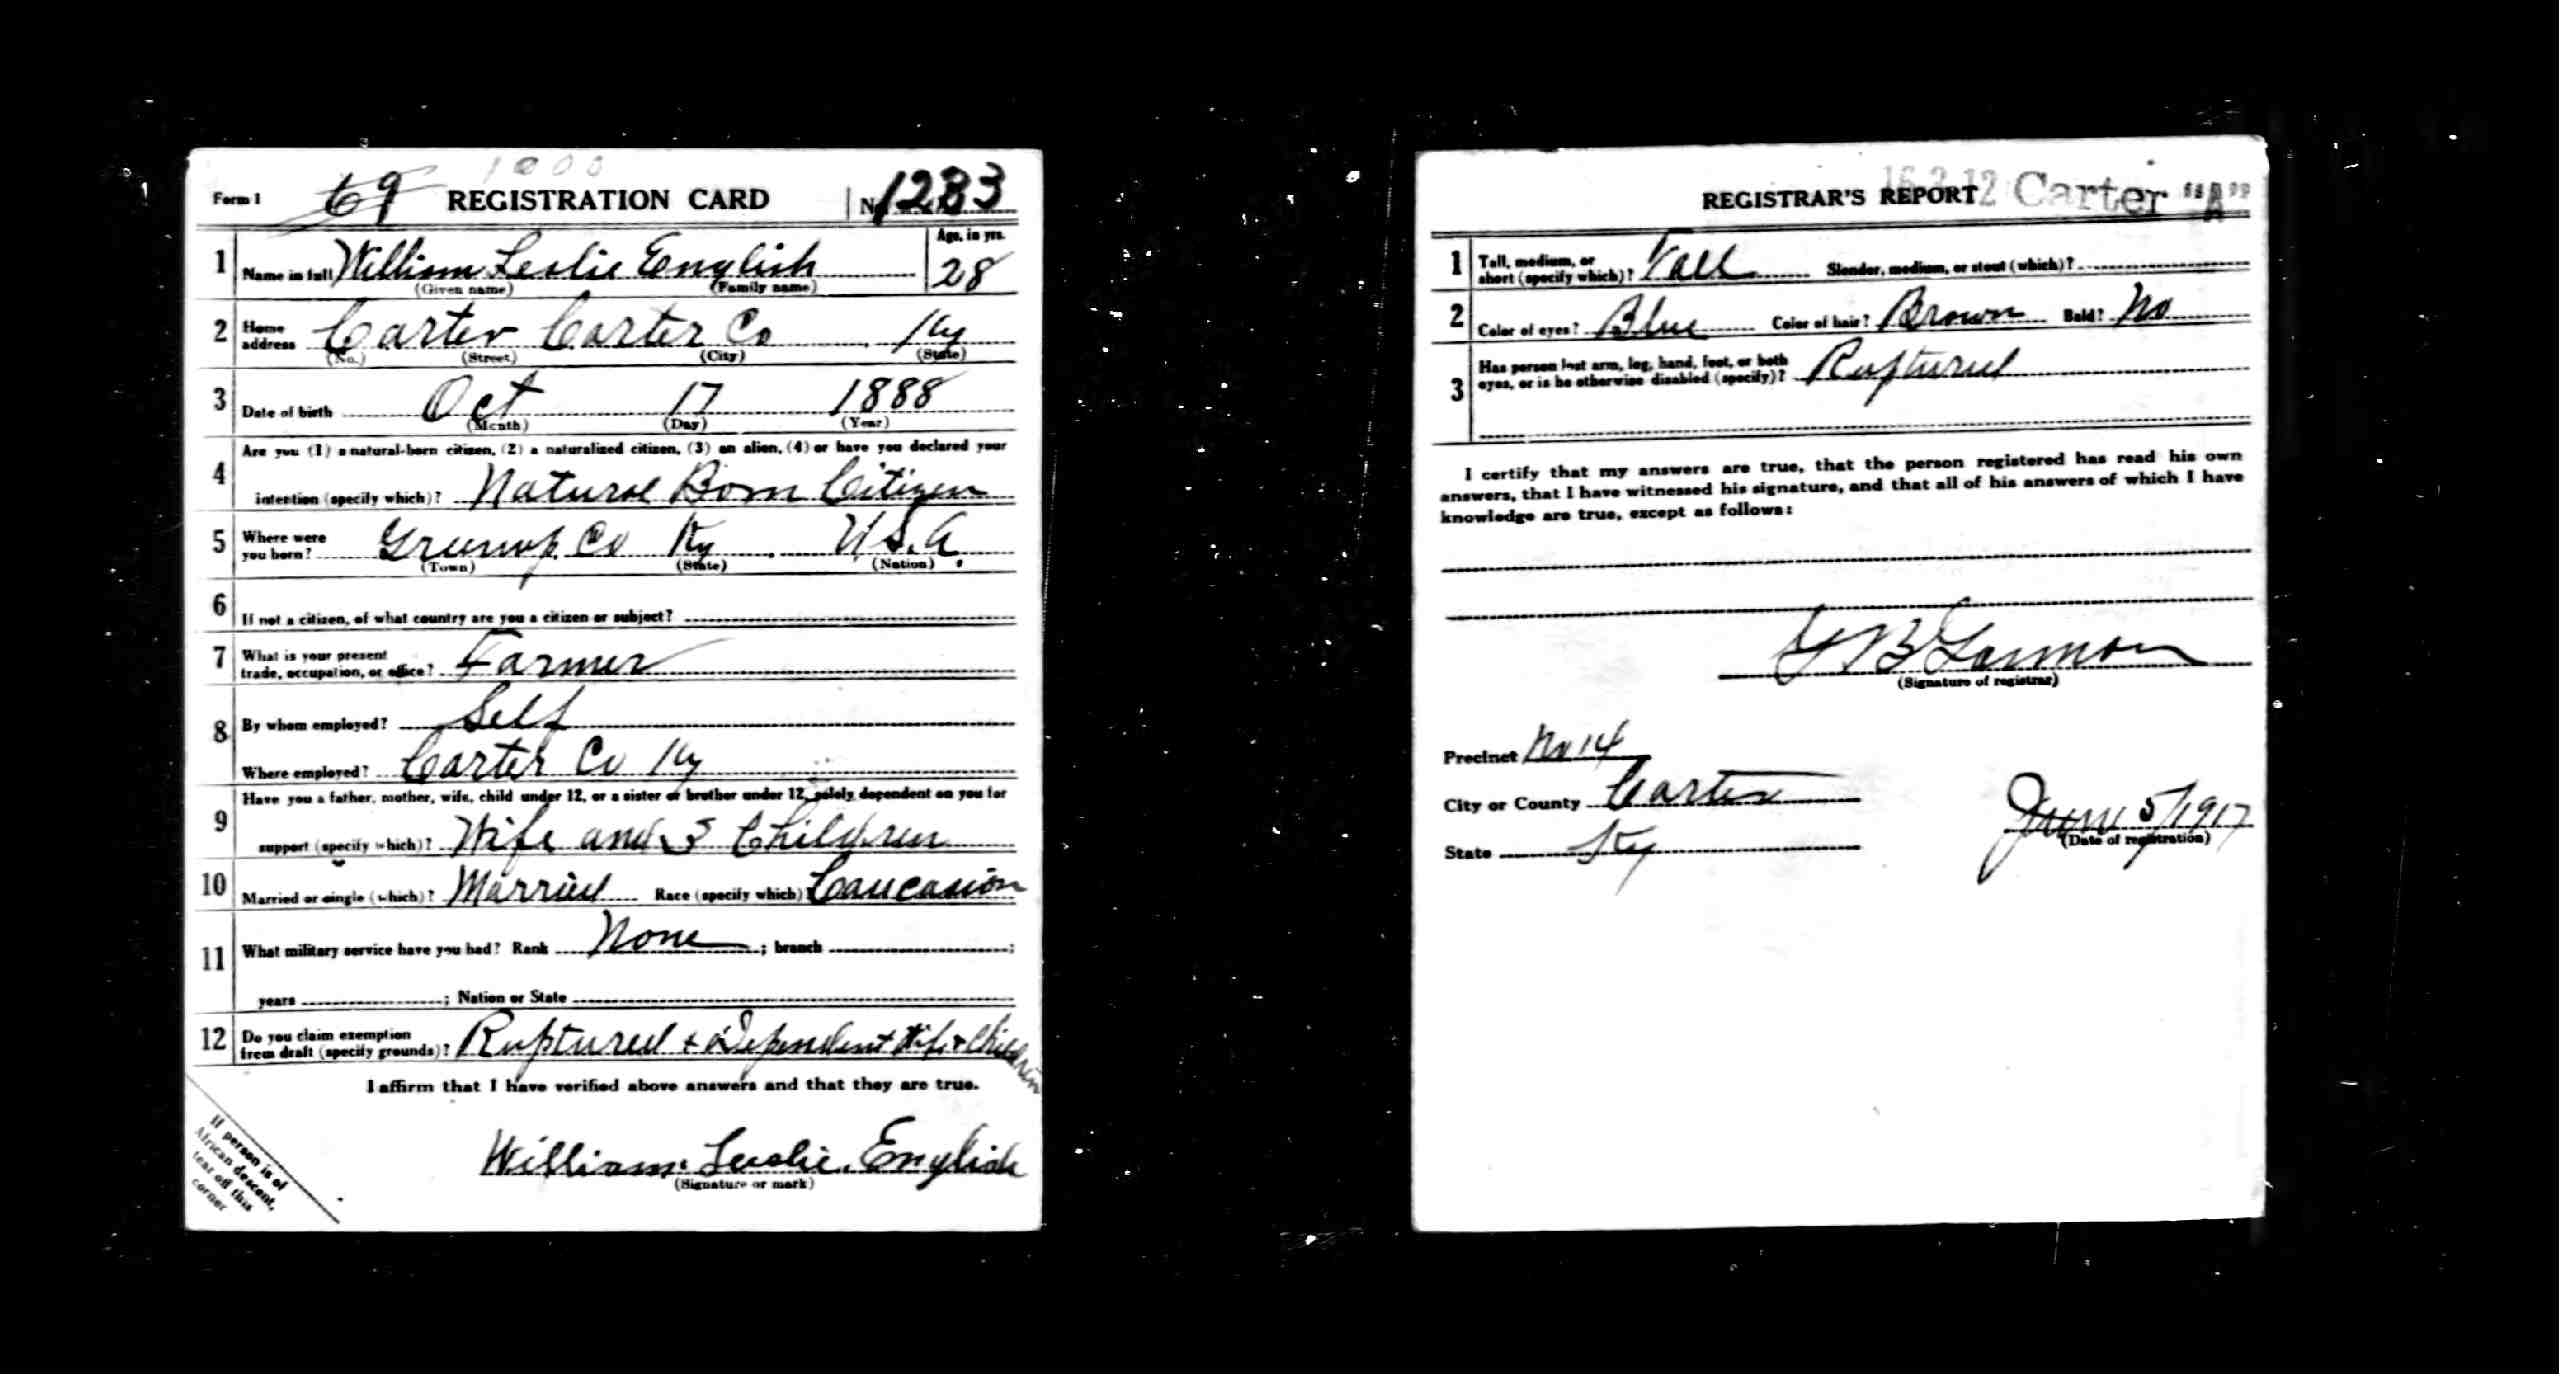 Form 1 69 REGISTRATION CARD No. 1283
1 Name in full William Leslie English Age, in yrs. 28
(Given name) (Family name)
2 Home address Carter Carter Co Ky
(No.) (Street) (City) (State)
3 Date of birth Oct 17 1888
(Month) (Day) (Year)
4 Are you (1) a natural-born citizen, (2) a naturalized citizen, (3) an alien, (4) or have you declared your
intention (specify which)? Natural Born Citizen
5 Where were you born? Greenup Co Ky U.S.A.
(Town) (State) (Nation)
6 If not a citizen, of what country are you a citizen or subject?
7 What is your present trade, occupation, or office? Farmer
8 By whom employed? Self
Where employed? Carter Co Ky
9 Have you a father, mother, wife, child under 12, or a sister or brother under 12, solely dependent on you for
support (specify which)? Wife and 3 Children
10 Married or single (which)? Married Race (specify which)? Caucasion
11 What military service have you had? Rank None ; branch ;
years ; Nation or State
12 Do you claim exemption from draft (specify grounds)? Ruptured + Dependent Wife + Children
I affirm that I have verified above answers and that they are true.
William. Leslie. English
(Signature or mark)
If person is of
African descent,
tear off this
corner
REGISTRAR'S REPORT Carter "A"
1 Tall, medium, or short (specify which)? Tall Slender, medium, or stout (which)?
2 Color of eyes? Blue Color of hair? Brown Bald? No
3 Has person lost arm, leg, hand, foot, or both
eyes, or is he otherwise disabled (specify)? Ruptured
I certify that my answers are true, that the person registered has read his own
answers, that I have witnessed his signature, and that all of his answers of which I have
knowledge are true, except as follows:
(Signature of registrar)
Precinct No 14
City or County Carter
State Ky
June 5/1917
(Date of registration)